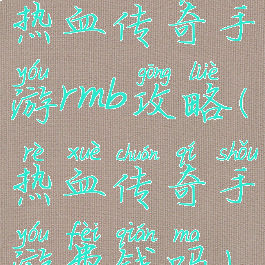 热血传奇手
yóu gōng lüè
游rmb攻略(
rè xuè chuán qí shǒu
热血传奇手
yóu fèi qián ma
游费钱吗)